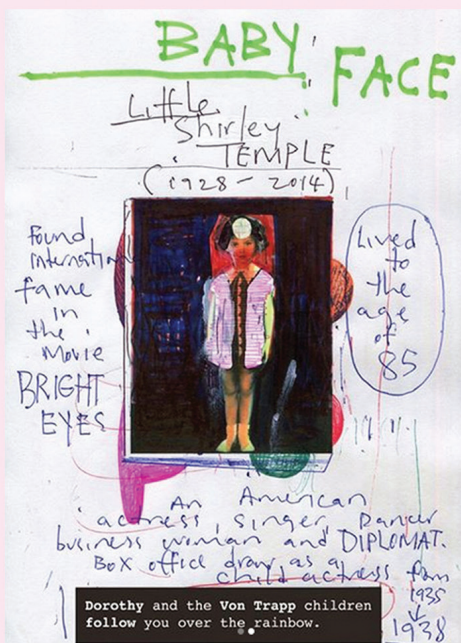 BABY FACE
Little
Shirley
TEMPLE
(1928 - 2014)
Found
international
fame
in
the
Movie
BRIGHT
EYES
Lived
to
the
age
of
85
An American
actress, singer, Dancer
business woman and DIPLOMAT.
Box office draw as a
child actress from
1935
1938
Dorothy and the Von Trapp children
follow you over the rainbow.